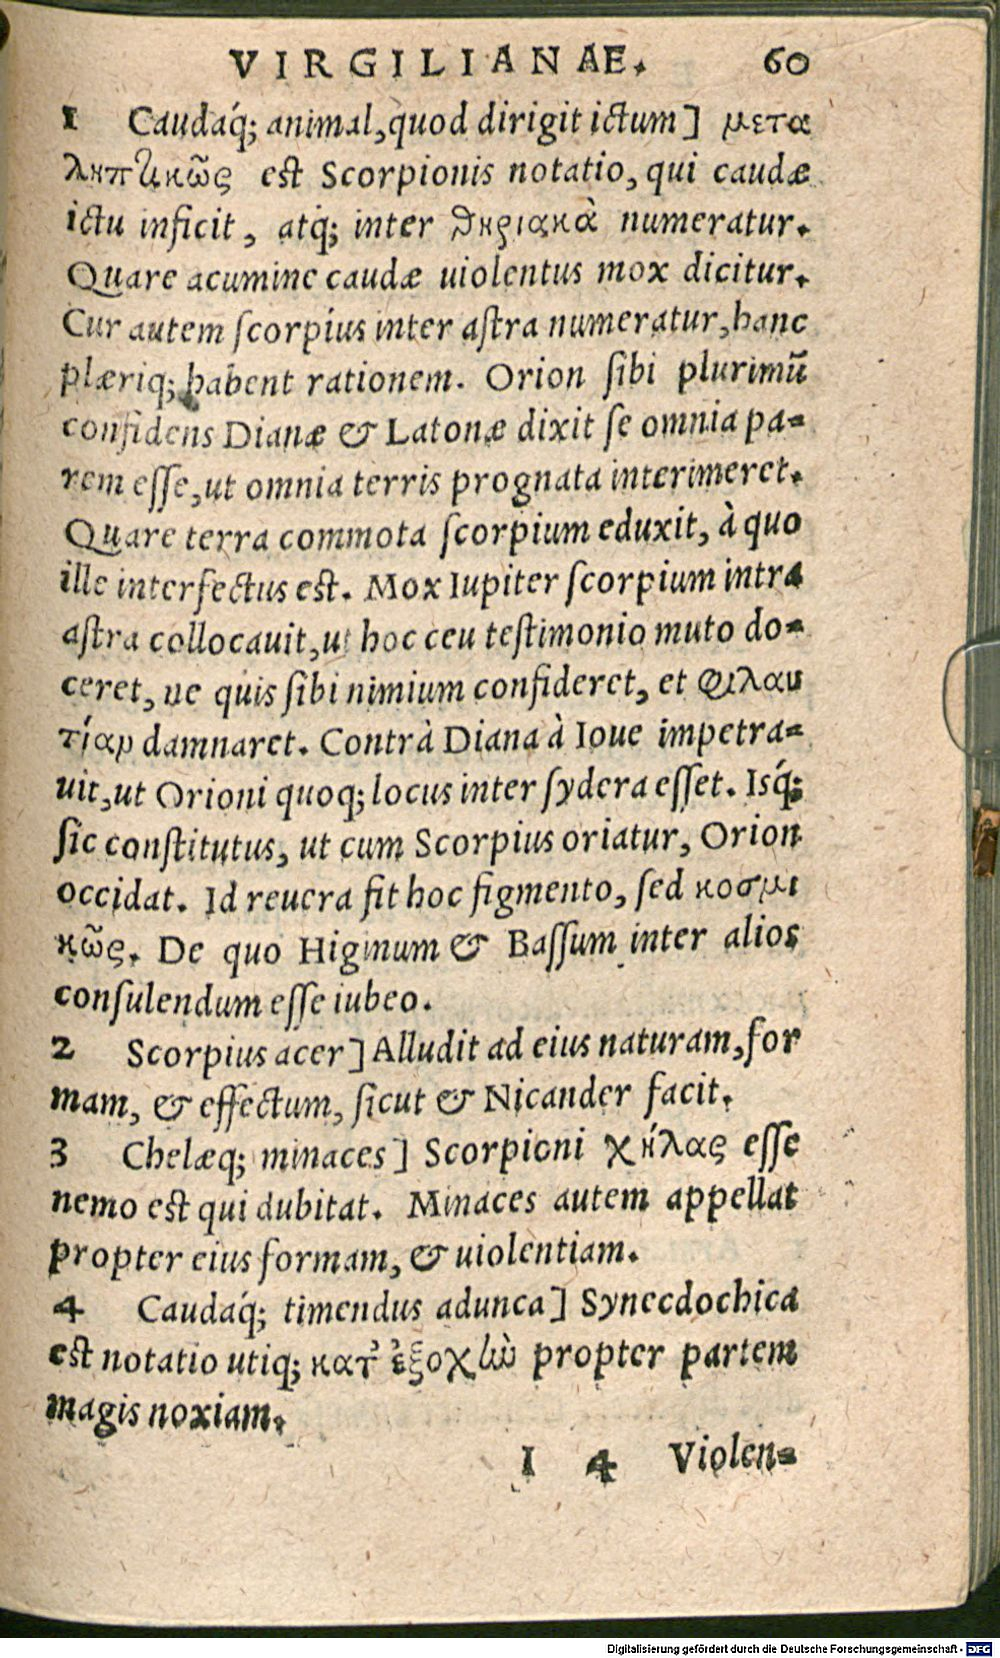 VIRGILIANAE. 60
1 Caudaq́; animal, quod dirigit ictum] μετα
ληπτικῶς est Scorpionis notatio, qui caudæ
ictu inficit, atq́; inter θηριακὰ numeratur.
Quare acumine caudæ uiolentus mox dicitur.
Cur autem ſcorpius inter aſtra numeratur, hanc
plæriq; habent rationem. Orion ſibi plurimū
confidens Dianæ & Latonæ dixit ſe omnia pa-
rem eſſe, ut omnia terris prognata interimeret.
Quare terra commota ſcorpium eduxit, à quo
ille interfectus est. Mox Iupiter ſcorpium intra
aſtra collocauit, ut hoc ceu teſtimonio muto do-
ceret, ne quis ſibi nimium confideret, et φιλαυ
τίαν damnaret. Contrà Diana à Ioue impetra-
uit, ut Orioni quoq; locus inter ſydera eſſet. Isq́;
ſic conſtitutus, ut cum Scorpius oriatur, Orion
occidat. Id reuera fit hoc figmento, ſed κοσμι
κῶς. De quo Higinum & Baſſum inter alios
conſulendum eſſe iubeo.
2 Scorpius acer] Alludit ad eius naturam, for
mam, & effectum, ſicut & Nicander facit.
3 Chelæq; minaces] Scorpioni χήλας eſſe
nemo est qui dubitat. Minaces autem appellat
propter eius formam, & uiolentiam.
4 Caudaq́; timendus adunca] Synecdochica
est notatio utiq; κατ' ἐξοχὴν propter partem
magis noxiam.
I 4 Violen-
Digitalisierung gefördert durch die Deutsche Forschungsgemeinschaft - DFG